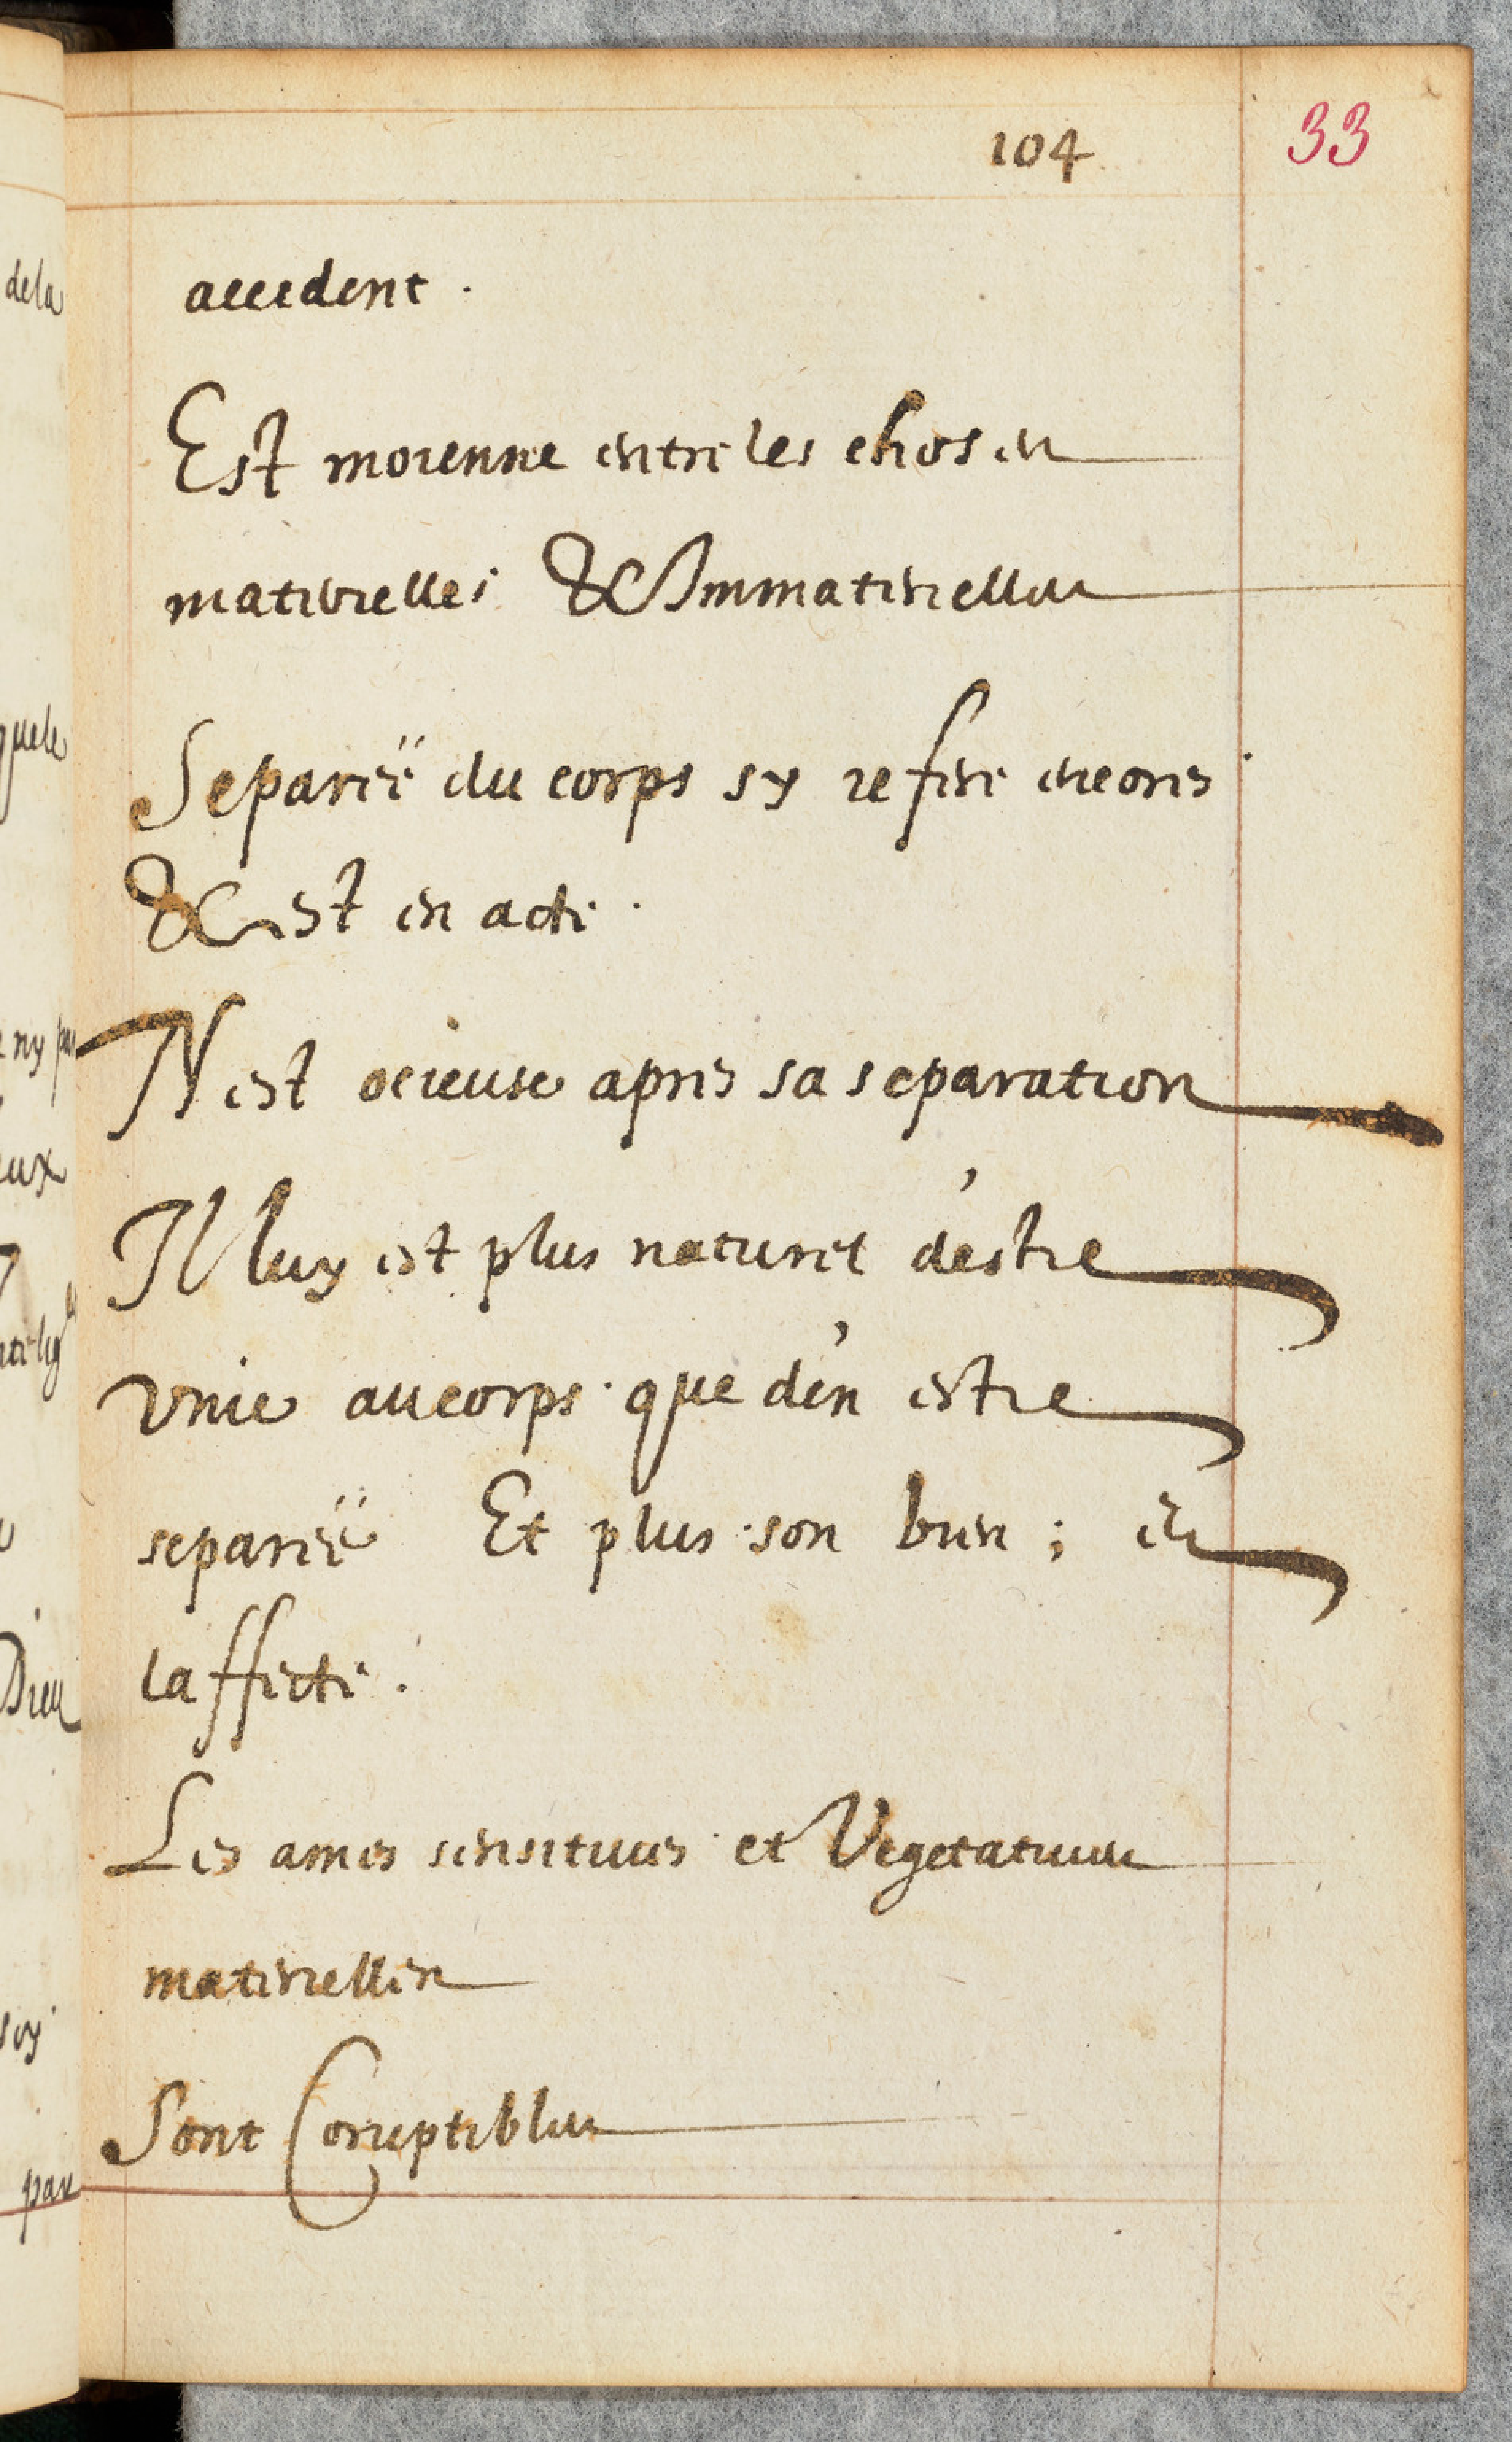 104 33
accident.
Est moienne entre les choses
materielles & Immaterielles
Separeë du corps sy refere encores
& est en acte.
N est ocieuse apres sa separation
Il luy est plus naturel d'estre
vnie au corps que d'en estre
separeë Et plus son bien ; et
laffecte.
Les ames sensitiues et Vegetatiues
materielles
Sont Coruptibles